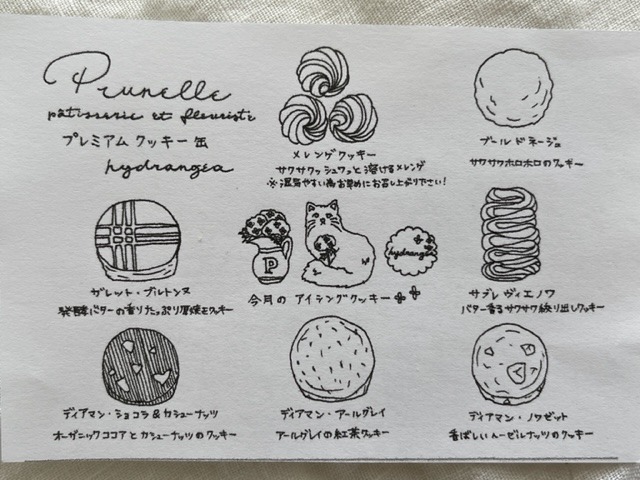 Prunelle
patisserie et fleuriste
プレミアム クッキー 缶
hydrangea
メレンゲクッキー
サクサクッシュワっと溶けるメレンゲ
※湿気やすい為お早めにお召し上がり下さい!
ブールドネージュ
サクサクホロホロのクッキー
ガレット・ブルトンヌ
発酵バターの香りたっぷり厚焼きクッキー
P
hydrangea
今月の アイシングクッキー
サブレ ヴィエノワ
バター香るサクサク絞り出しクッキー
ディアマン・ショコラ&カシューナッツ
オーガニックココアとカシューナッツのクッキー
ディアマン・アールグレイ
アールグレイの紅茶クッキー
ディアマン・ノワゼット
香ばしいヘーゼルナッツのクッキー